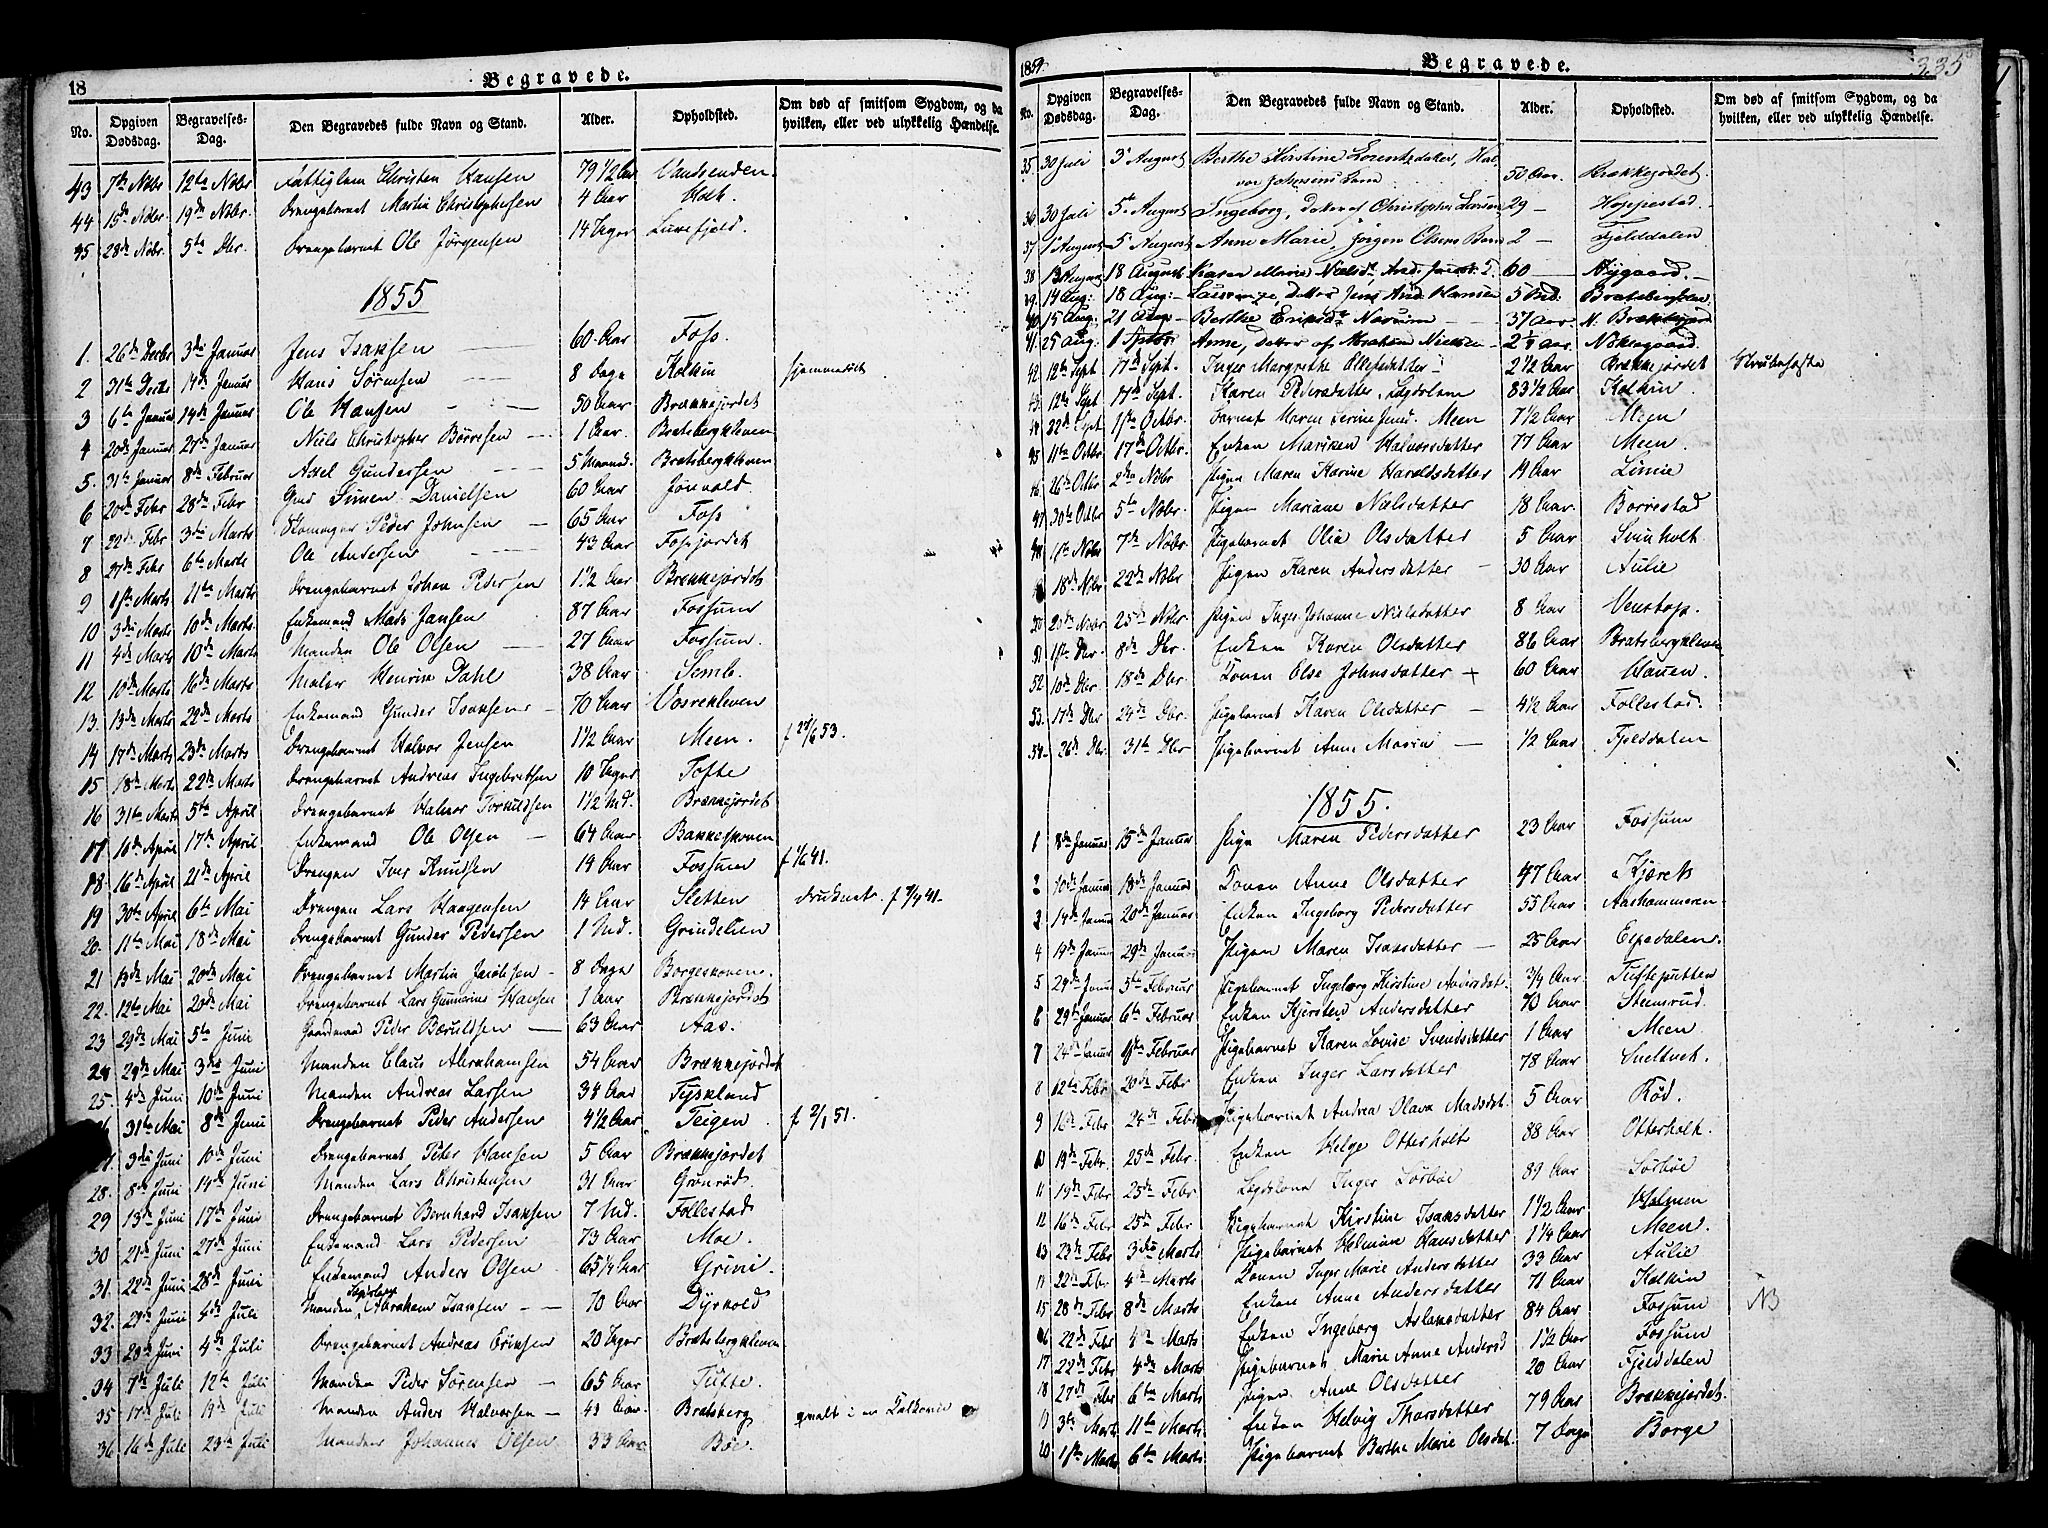 18
Begravede.
No. Opgiven Dødsdag. Begravelses-Dag. Den Begravedes fulde Navn og Stand. Alder. Opholdsted. Om død af smitsom Sygdom, og da hvilken, eller ved ulykkelig Hændelse.
43 7de Nobr 12te Nobr Fattiglem Christen Hansen 79 1/2 Aar Vandsenden.
44 15de Nobr. 19de Nobr. Drengebarnet Martin Christophersen 4 Aar Holt.
45 28de Nobr. 5te Dbr. Drengebarnet Ole Jörgensen 14 Uger Luxefjeld.
1855
1. 26de Decbr 3die Januar Jens Isaksen 60 Aar Foss
2 31te Decbr 14de Januar Hans Sörensen 8 Dage Kolkin hjemmedöbt
3 6te Januar 14de Januar Ole Hansen 50 Aar Brækkejordet
4 20de Januar 27de Januar Niels Christopher Börresen 1 Aar. Bratsbergkleven
5. 31te Januar 8de Februar Axel Gundersen 5 Maaned. Bratsbergkleven
6 20de Febr 28de Febr Simen Danielsen 60 Aar Jönvold.
7 22de Febr 3die Marts Skomager Peder Johnsen 65 Aar Foss
8 27de Febr 6te Marts Ole Andersen 43 Aar Fossjordet
9 1ste Marts 11te Marts Drengebarnet Johan Pedersen 1 1/2 Aar Brækkejordet
10 3die Marts 10de Marts. Enkemand Mads Jansen 87 Aar Fossum
11 4de Marts 10de Marts Manden Ole Olsen 27 Aar Fossum.
12 10de Marts 16de Marts Maler Henrik Dahl 38 Aar Semb.
13. 13de Marts 22de Marts Enkemand Gunder Isaksen 70 Aar Vosrekleven
14 17de Marts 23de Marts Drengebarnet Halvor Jensen 1 1/2 Aar Meen. f 28/6 53.
15 18de Marts 22de Marts Drengebarnet Andreas Ingebretsen 10 Uger Tofte
16 31te Marts 5te April Drengebarnet Halvor Torkildsen 1 1/2 Md. Brækkejordet
17 10de April 17de April Enkemand Ole Olsen 64 Aar Bakkeskoven
18 16de April 21de April Drengen Iver Knudsen 14 Aar Fossum f 1/6 41.
19 30te April 6te Mai Drengen Lars Haagensen 14 Aar Sletten druknet. f 7/4 41.
20. 11te Mai 18de Mai Drengebarnet Gunder Pedersen 1 Md. Grindelien
21 13de Mai 20de Mai Drengebarnet Martin Jacobsen 8 Dage Borgeskoven.
22. 12te Mai 20de Mai Drengebarnet Lars Gunnarius Hansen 1 Aar Brækkejordet
23 29de Mai 5te Juni Gaardmand Peder Bæruldsen 63 Aar Aas.
24 29de Mai 3die Juni Manden Claus Abrahamsen 54 Aar Brækkejordet
25. 4de Juni 10de Juni Manden Andreas Larsen 34 Aar Tyskland
26 31te Mai 8de Juni Drengebarnet Peder Andersen 4 1/2 Aar Teigen f 2/1 51.
27. 3die Juni 10de Juni Drengebarnet Peter Hansen 5 Aar Brækkejordet
28. 8de Juni 14de Juni Manden Lars Christensen 31 Aar Grönröd.
29 13de Juni 17de Juni Drengebarnet Bernhard Isaksen 7 Md. Follestad
30 21de Juni 27de Juni Enkemand Lars Pedersen 73 Aar Moe.
31. 22de Juni 28de Juni Enkemand Anders Olsen 65 1/4 Aar Grini.
32. 29de Juni 4de Juli Manden Abraham Isaksen 70 Aar Dyrkold
33 28de Juni 4de Juli Drengebarnet Andreas Eriksen 20 Uger Bratsbergkleven
34 7de Juli 12te Juli Manden Peder Sörensen 65 Aar Tufte.
35 17de Juli 19de Juli Manden Anders Halvorsen 43 Aar. Bratsberg qvalt i en Kalkovn
36 16de Juli 23de Juli Manden Johannes Olsen 33 Aar. Böe.
1854.
Begravede.
335
No. Opgiven Dødsdag. Begravelses-Dag. Den Begravedes fulde Navn og Stand. Alder. Opholdsted. Om død af smitsom Sygdom, og da hvilken, eller ved ulykkelig Hændelse.
35 30 Juli 3die August Berthe Kirstine Lorentzdatter, Halvor Johnsens 50 Aar. Brækkejordet.
36 30 Juli 5te August Ingeborg, datter af Christopher Larsen 29 — Hoppestad.
37 1ste August 5 August Anne Marie, Jörgen Olsens Barn 2 — Fjelddalen
38 13 August 18 August Karen Marie Nielsd. 60 — Nygaard.
39 14 Aug: 18 Aug: datter Jens And. Hansen 5 Md: Bratsbergkleven
40 15 Aug. 21 Aug. Berthe Eriksd. 37 Aar.
41 25 Aug. 1 Septbr. Anne, datter af Abraham Nielsen 2 1/4 Aar.
42 12te Sept 17de Sept. Inger Margrethe Ollesdatter 2 1/2 Aar Brækkejordet Strubehoste
43 12te Sept 17de Sept. Karen Pedersdatter, Lægdslem 83 1/2 Aar Kolkin
44 22de Sept 1ste Octbr. Barnet Maren Serine Jensd. Meen 7 1/2 Aar Meen
45 11te Octbr 17de Octbr. Enken Mariken Halvorsdatter 77 Aar Meen
46 26de Octbr 2den Nobr Pigen Maren Karine Haroldsdatter 19 Aar Limie
47 30te Octbr 5te Nobr. Pigen Mariane Nielsdatter 18 Aar. Borrestad
48 1ste Nobr 7de Nobr. Pigebarnet Olia Olsdatter 5 Aar Sniholt
49 18de Nobr 22de Nobr Pigen Karen Andersdatter 30 Aar Aulie
50 20de Nobr 25de Nobr Pigen Inger Johanne Nielsdatter 8 Aar Venstøp.
51 1ste Dbr. 8de Dbr. Enken Karen Olsdatter 86 Aar Bratsbergkleven
52 10de Dbr 18de Dbr. Konen Else Johnsdatter + 60 Aar Hauen.
53. 17de Dbr 24de Dbr. Pigebarnet Karen Olsdatter 4 1/2 Aar Follestad.
54. 26de Dbr. 31te Dbr Pigebarnet Anne Maria 1/2 Aar Fjelddalen
1855.
1 8de Januar 15de Januar Pige Maren Pedersdatter 23 Aar Fossum
2 10de Januar 18de Januar Konen Anne Olsdatter 47 Aar Kjærets
3 14de Januar 20de Januar Enken Ingeborg Pedersdatter 55 Aar Aashammeren
4 19de Januar 29de Januar Pigen Maren Isaksdatter 25 Aar Espedalen.
5 29de Januar 5te Februar Pigebarnet Ingeborg Kirstine Andersdat. 3/4 Aar Tufteputten
6 29te Januar 6te Februar Enken Kjersten Andersdatter 70 Aar Steensrud.
7 24de Januar Februar Pigebarnet Karen Lovise Svendsdatter 1 Aar Meen
8 12te Febr 20de Febr Enken Inger Larsdatter 78 Aar Sneltvet.
9 16de Febr 24de Febr Pigebarnet Andrea Olava Madsdat. 5 Aar Röd.
10 19de Febr. 25de Febr. Enken Helge Otterholt 88 Aar Otterholt.
11 19de Febr 25de Febr Lægdskone Inger Sörböe 89 Aar Sörböe
12 16de Febr 25de Febr Pigebarnet Kirstine Isaksdatter 1 1/2 Aar
13 23de Febr 3die Marts Pigebarnet Helmine Hansdatter 1 1/4 Aar Meen.
14 22de Febr 4de Marts Konen Inger Marie Andersdatter 33 Aar Aulie
15 28de Febr 8de Marts Enken Anne Andersdatter 71 Aar Kolkin
16 22de Febr 4de Marts Enken Ingeborg Aslaksdatter 84 Aar Fossum NB
17 22de Febr 4de Marts Pigebarnet Marie Anne Andersd 1 1/2 Aar Fossum
18 27de Febr 6te Marts Pigen Anne Olsdatter 20 Aar Fjelddalen
19 3die Marts 11te Marts Enken Helvig Thorsdatter 79 Aar Brækkejordet.
20 1ste Marts 6te Marts Pigebarnet Berthe Marie Olsdat. 7 Dage Borge